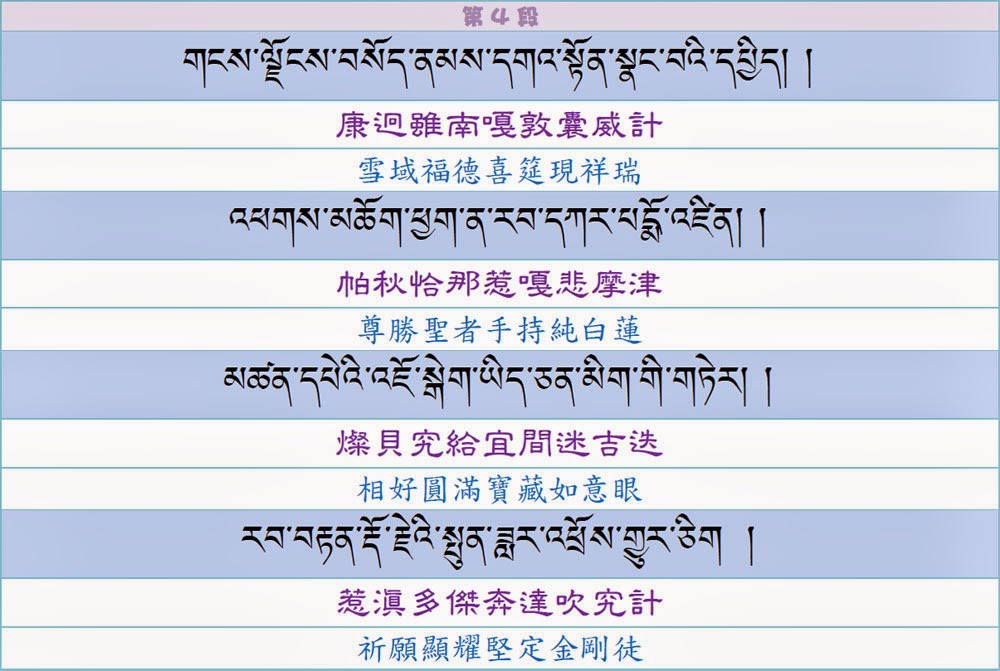 第4段
གངས་ལྗོངས་བསོད་ནམས་དགའ་སྟོན་སྣང་བའི་དཔྱིད། །
康迥雖南嘎敦囊威計
雪域福德喜筵現祥瑞
འཕགས་མཆོག་ཕྱག་ན་རབ་དཀར་པདྨོ་འཛིན། །
帕秋恰那惹嘎悲摩津
尊勝聖者手持純白蓮
མཚན་དཔེའི་འཛོ་སྒེག་ཡིད་ཅན་མིག་གི་གཏེར། །
燦貝究給宜間迷吉迭
相好圓滿寶藏如意眼
རབ་བརྟན་རྡོ་རྗེའི་སྤུན་ཟླར་འཕྲོས་གྱུར་ཅིག །
惹滇多傑奔達吹究計
祈願顯耀堅定金剛徒